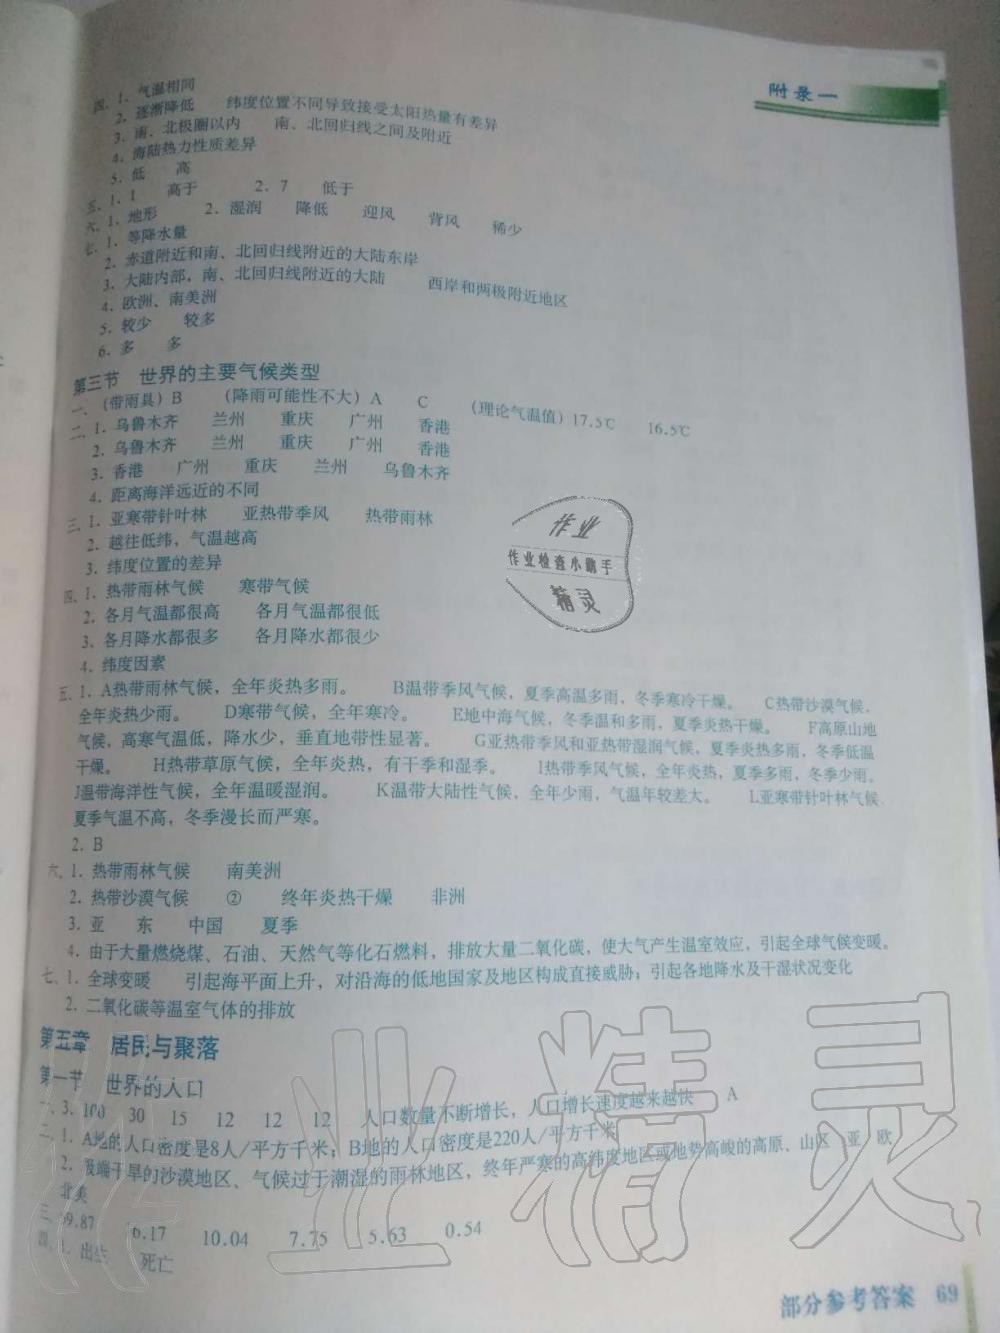 附录一
四、1. 气温相同
2. 逐渐降低 纬度位置不同导致接受太阳热量有差异
3. 南、北极圈以内 南、北回归线之间及附近
4. 海陆热力性质差异
5. 低 高
五、1. 1 高于 2. 7 低于
六、1. 地形 2. 湿润 降低 迎风 背风 稀少
七、1. 等降水量
2. 赤道附近和南、北回归线附近的大陆东岸
3. 大陆内部，南、北回归线附近的大陆 西岸和两极附近地区
4. 欧洲、南美洲
5. 较少 较多
6. 多 多
第三节 世界的主要气候类型
一、(带雨具) B (降雨可能性不大) A C (理论气温值) 17.5℃ 16.5℃
二、1. 乌鲁木齐 兰州 重庆 广州 香港
2. 乌鲁木齐 兰州 重庆 广州 香港
3. 香港 广州 重庆 兰州 乌鲁木齐
4. 距离海洋远近的不同
三、1. 亚寒带针叶林 亚热带季风 热带雨林
2. 越往低纬，气温越高
3. 纬度位置的差异
四、1. 热带雨林气候 寒带气候
2. 各月气温都很高 各月气温都很低
3. 各月降水都很多 各月降水都很少
4. 纬度因素
五、1. A热带雨林气候，全年炎热多雨。 B温带季风气候，夏季高温多雨，冬季寒冷干燥。 C热带沙漠气候，
全年炎热少雨。 D寒带气候，全年寒冷。 E地中海气候，冬季温和多雨，夏季炎热干燥。 F高原山地
气候，高寒气温低，降水少，垂直地带性显著。 G亚热带季风和亚热带湿润气候，夏季炎热多雨，冬季低温
干燥。 H热带草原气候，全年炎热，有干季和湿季。 I热带季风气候，全年炎热，夏季多雨，冬季少雨。
J温带海洋性气候，全年温暖湿润。 K温带大陆性气候，全年少雨，气温年较差大。 L亚寒带针叶林气候，
夏季气温不高，冬季漫长而严寒。
2. B
六、1. 热带雨林气候 南美洲
2. 热带沙漠气候 ② 终年炎热干燥 非洲
3. 亚 东 中国 夏季
4. 由于大量燃烧煤、石油、天然气等化石燃料，排放大量二氧化碳，使大气产生温室效应，引起全球气候变暖。
七、1. 全球变暖 引起海平面上升，对沿海的低地国家及地区构成直接威胁；引起各地降水及干湿状况变化
2. 二氧化碳等温室气体的排放
第五章 居民与聚落
第一节 世界的人口
一、3. 100 30 15 12 12 12 人口数量不断增长，人口增长速度越来越快 A
二、1. A地的人口密度是8人/平方千米；B地的人口密度是220人/平方千米
2. 极端干旱的沙漠地区、气候过于潮湿的雨林地区，终年严寒的高纬度地区或地势高峻的高原、山区 亚 欧
北美
三、69.87 6.17 10.04 7.75 5.63 0.54
四、1. 出生 死亡
部分参考答案 69
作业
作业检查小助手
精灵
作业精灵